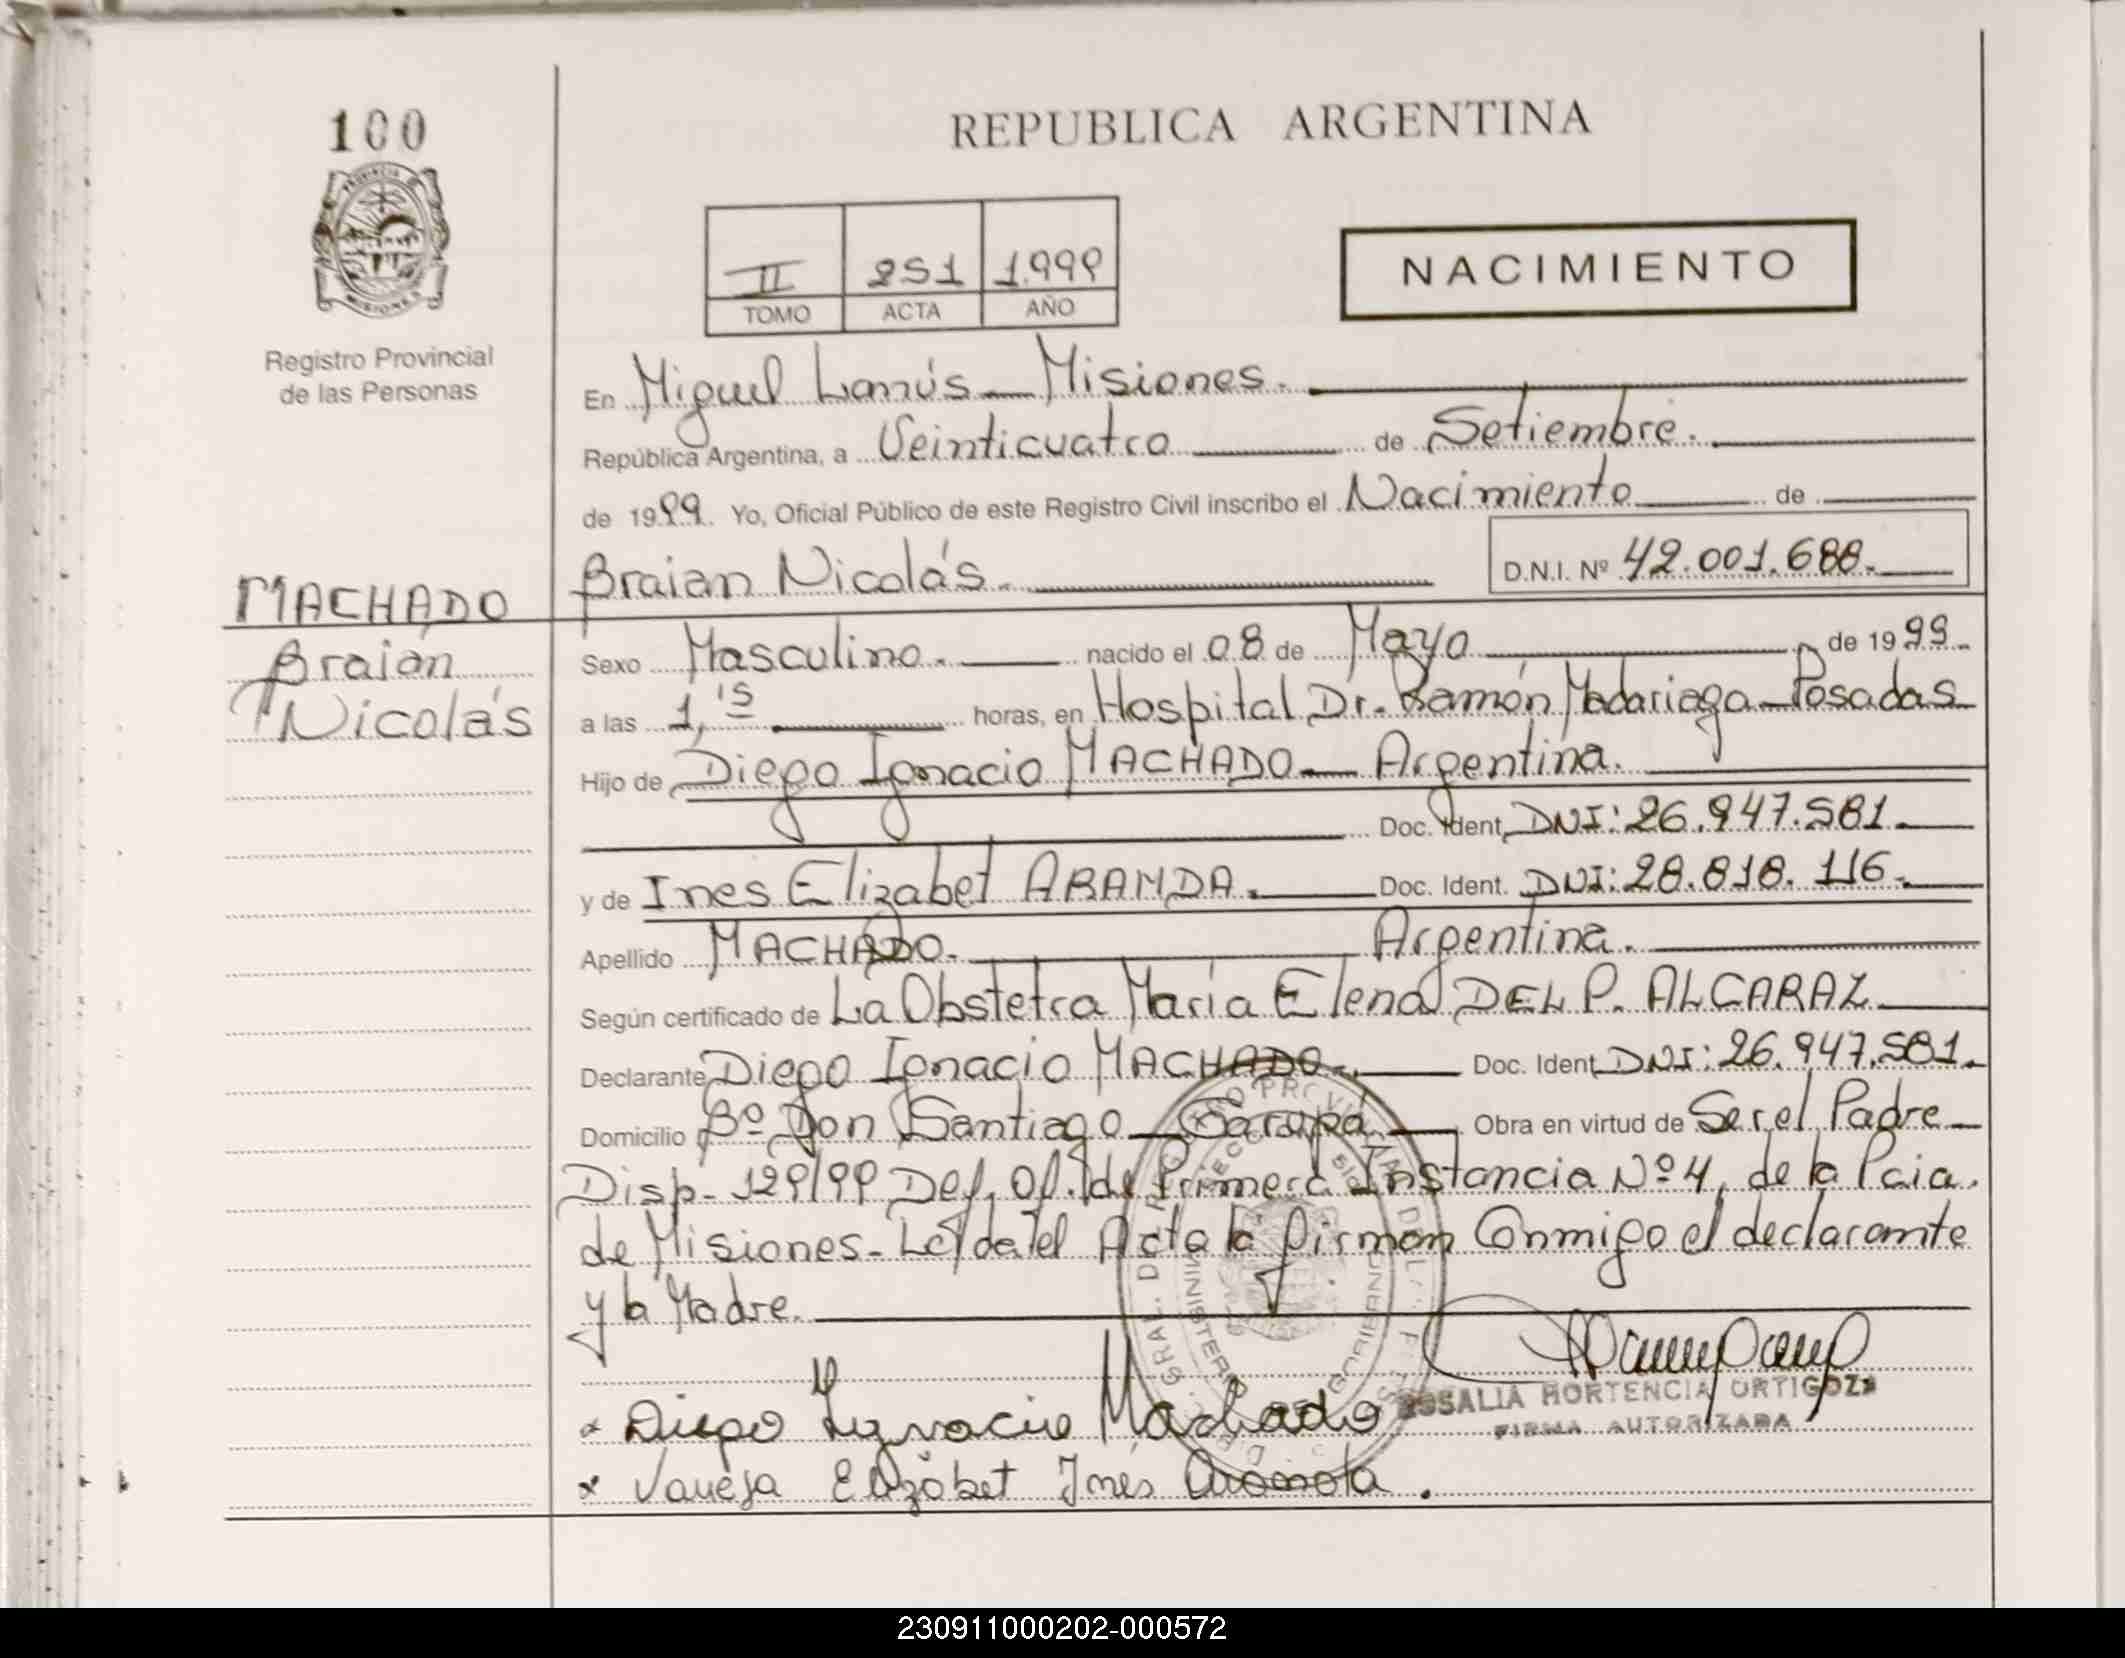 100
REPUBLICA ARGENTINA
II 251 1.999
TOMO ACTA AÑO
NACIMIENTO
Registro Provincial
de las Personas
En Miguel Lanús - Misiones.
República Argentina, a Veinticuatro de Setiembre.
de 1999. Yo, Oficial Público de este Registro Civil inscribo el Nacimiento de
Braian Nicolás. D.N.I. Nº 42.001.688.
MACHADO
Braian
Nicolás
Sexo Masculino. nacido el 08 de Mayo de 1999.
a las 1,15 horas, en Hospital Dr. Ramón Madariaga - Posadas
Hijo de Diego Ignacio MACHADO - Argentina.
Doc. Ident. DNI: 26.947.581.
y de Ines Elizabet ARANDA. Doc. Ident. DNI: 28.818.116.
Apellido MACHADO. Argentina.
Según certificado de La Obstetra María Elena DEL P. ALCARAZ
Declarante Diego Ignacio MACHADO. Doc. Ident. DNI: 26.947.581.
Domicilio Bº Don Santiago - Garupá Obra en virtud de Ser el Padre
Disp- 129/99 Def. Of. de Primera Instancia Nº 4, de la Pcia.
de Misiones - Leída el Acta la firman Conmigo el declarante
y la Madre.
ROSALIA HORTENCIA ORTIGOZA
FIRMA AUTORIZADA
x Diego Ignacio Machado
x Vanesa Elizabet Inés Aranda.
230911000202-000572